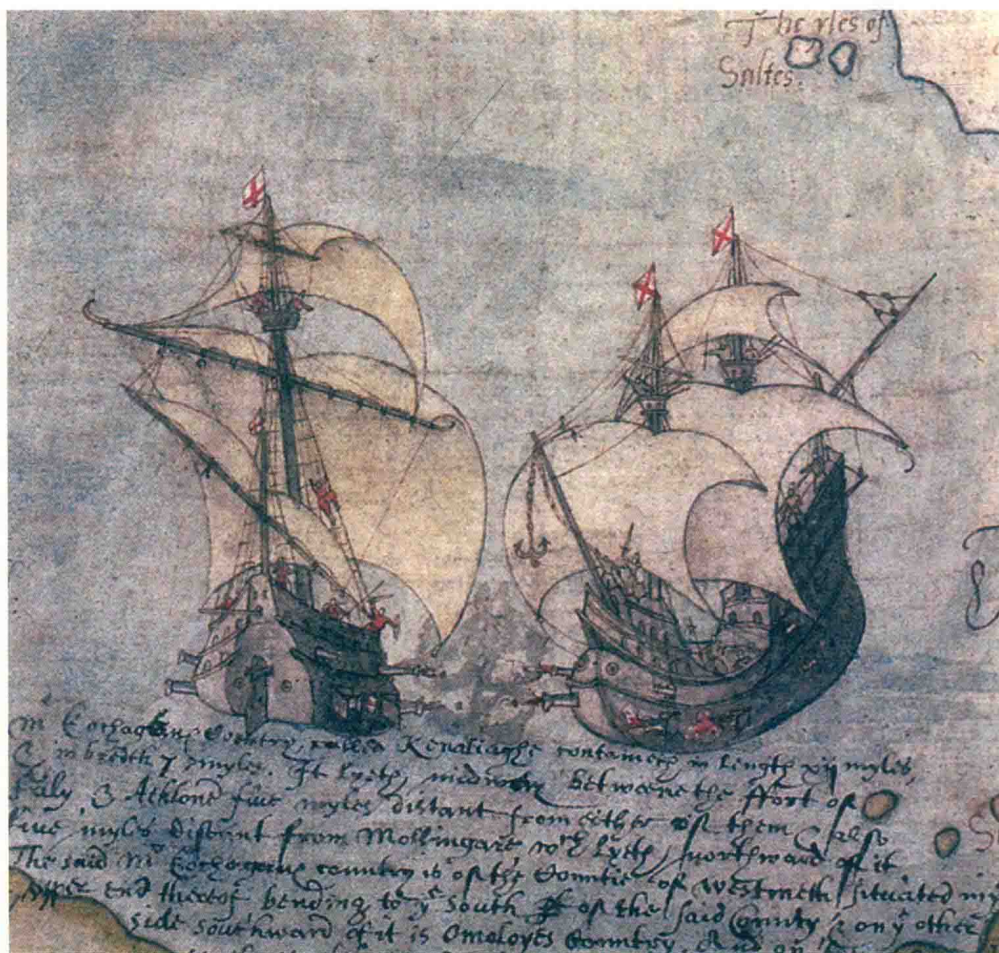 The yles of
Saltes.
Mr Eochagans Countrey, called Kenaliaghe contameth in length xij myles,
& in bredth 7 myles. It lyeth midway betweene the ffort of
Faly & Athlone five myles distant from either of them & also
five myles distant from Mollingare wch lyeth northward of it
The said Mr Eochogans country is of the Countie of Westmeth situated in
upper end thereof bending to ye South of the said County & on ye other
side southward of it is Omoloyes Countrey. And on